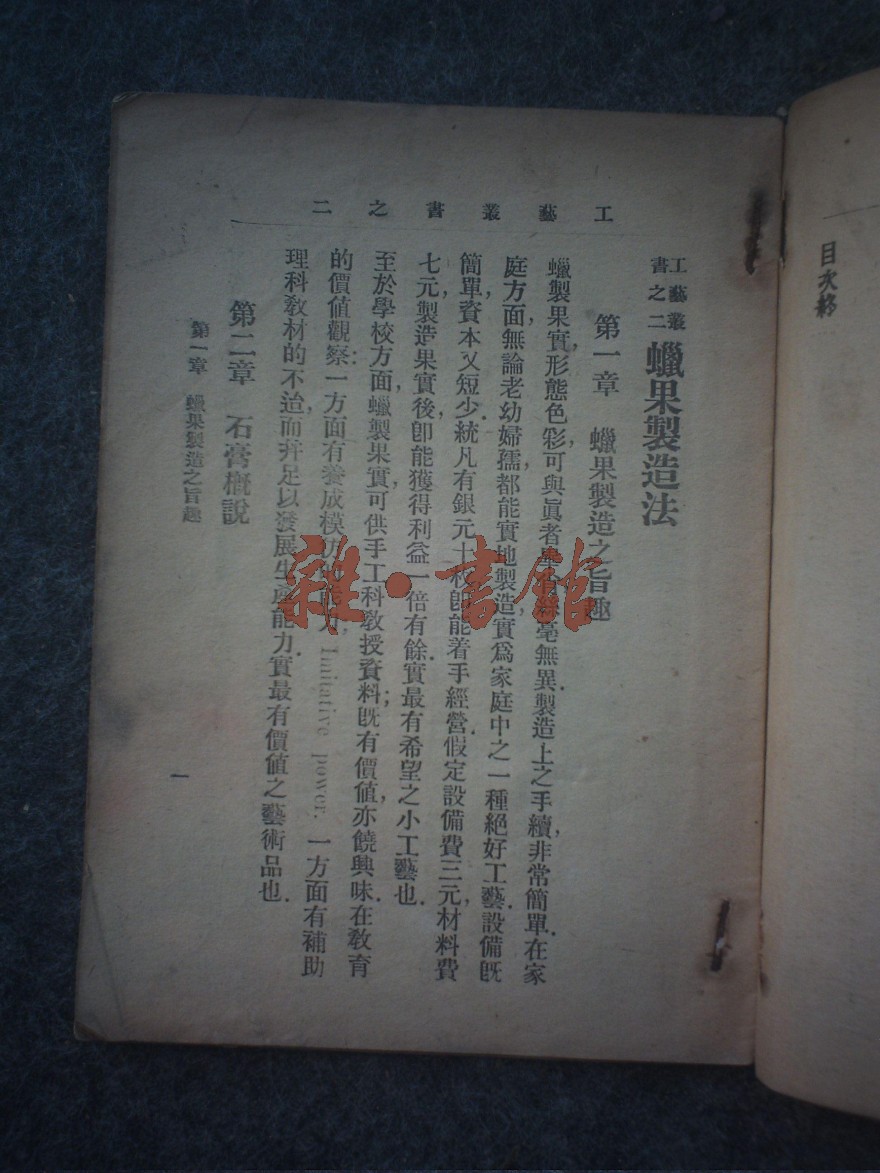 工藝叢書之二
工藝叢書之二 蠟果製造法
第一章 蠟果製造之旨趣
蠟製果實,形態色彩可與眞者毫無異.製造上之手續,非常簡單.在家
庭方面,無論老幼婦孺都能實地製造,實爲家庭中之一種絕好工藝.設備旣
簡單,資本又短少.統凡有銀元十枚,卽能着手經營.假定設備費三元,材料費
七元,製造果實後,卽能獲得利益一倍有餘,實最有希望之小工藝也.
至於學校方面,蠟製果實,可供手工科教授資料;旣有價值,亦饒興味.在敎育
的價値觀察:一方面有養成模仿能力,Imitative power.一方面有補助
理科敎材的不逮,而并足以發展生產能力,實最有價値之藝術品也.
第二章 石膏槪說
第一章 蠟果製造之旨趣
一
目次終
雜·書館